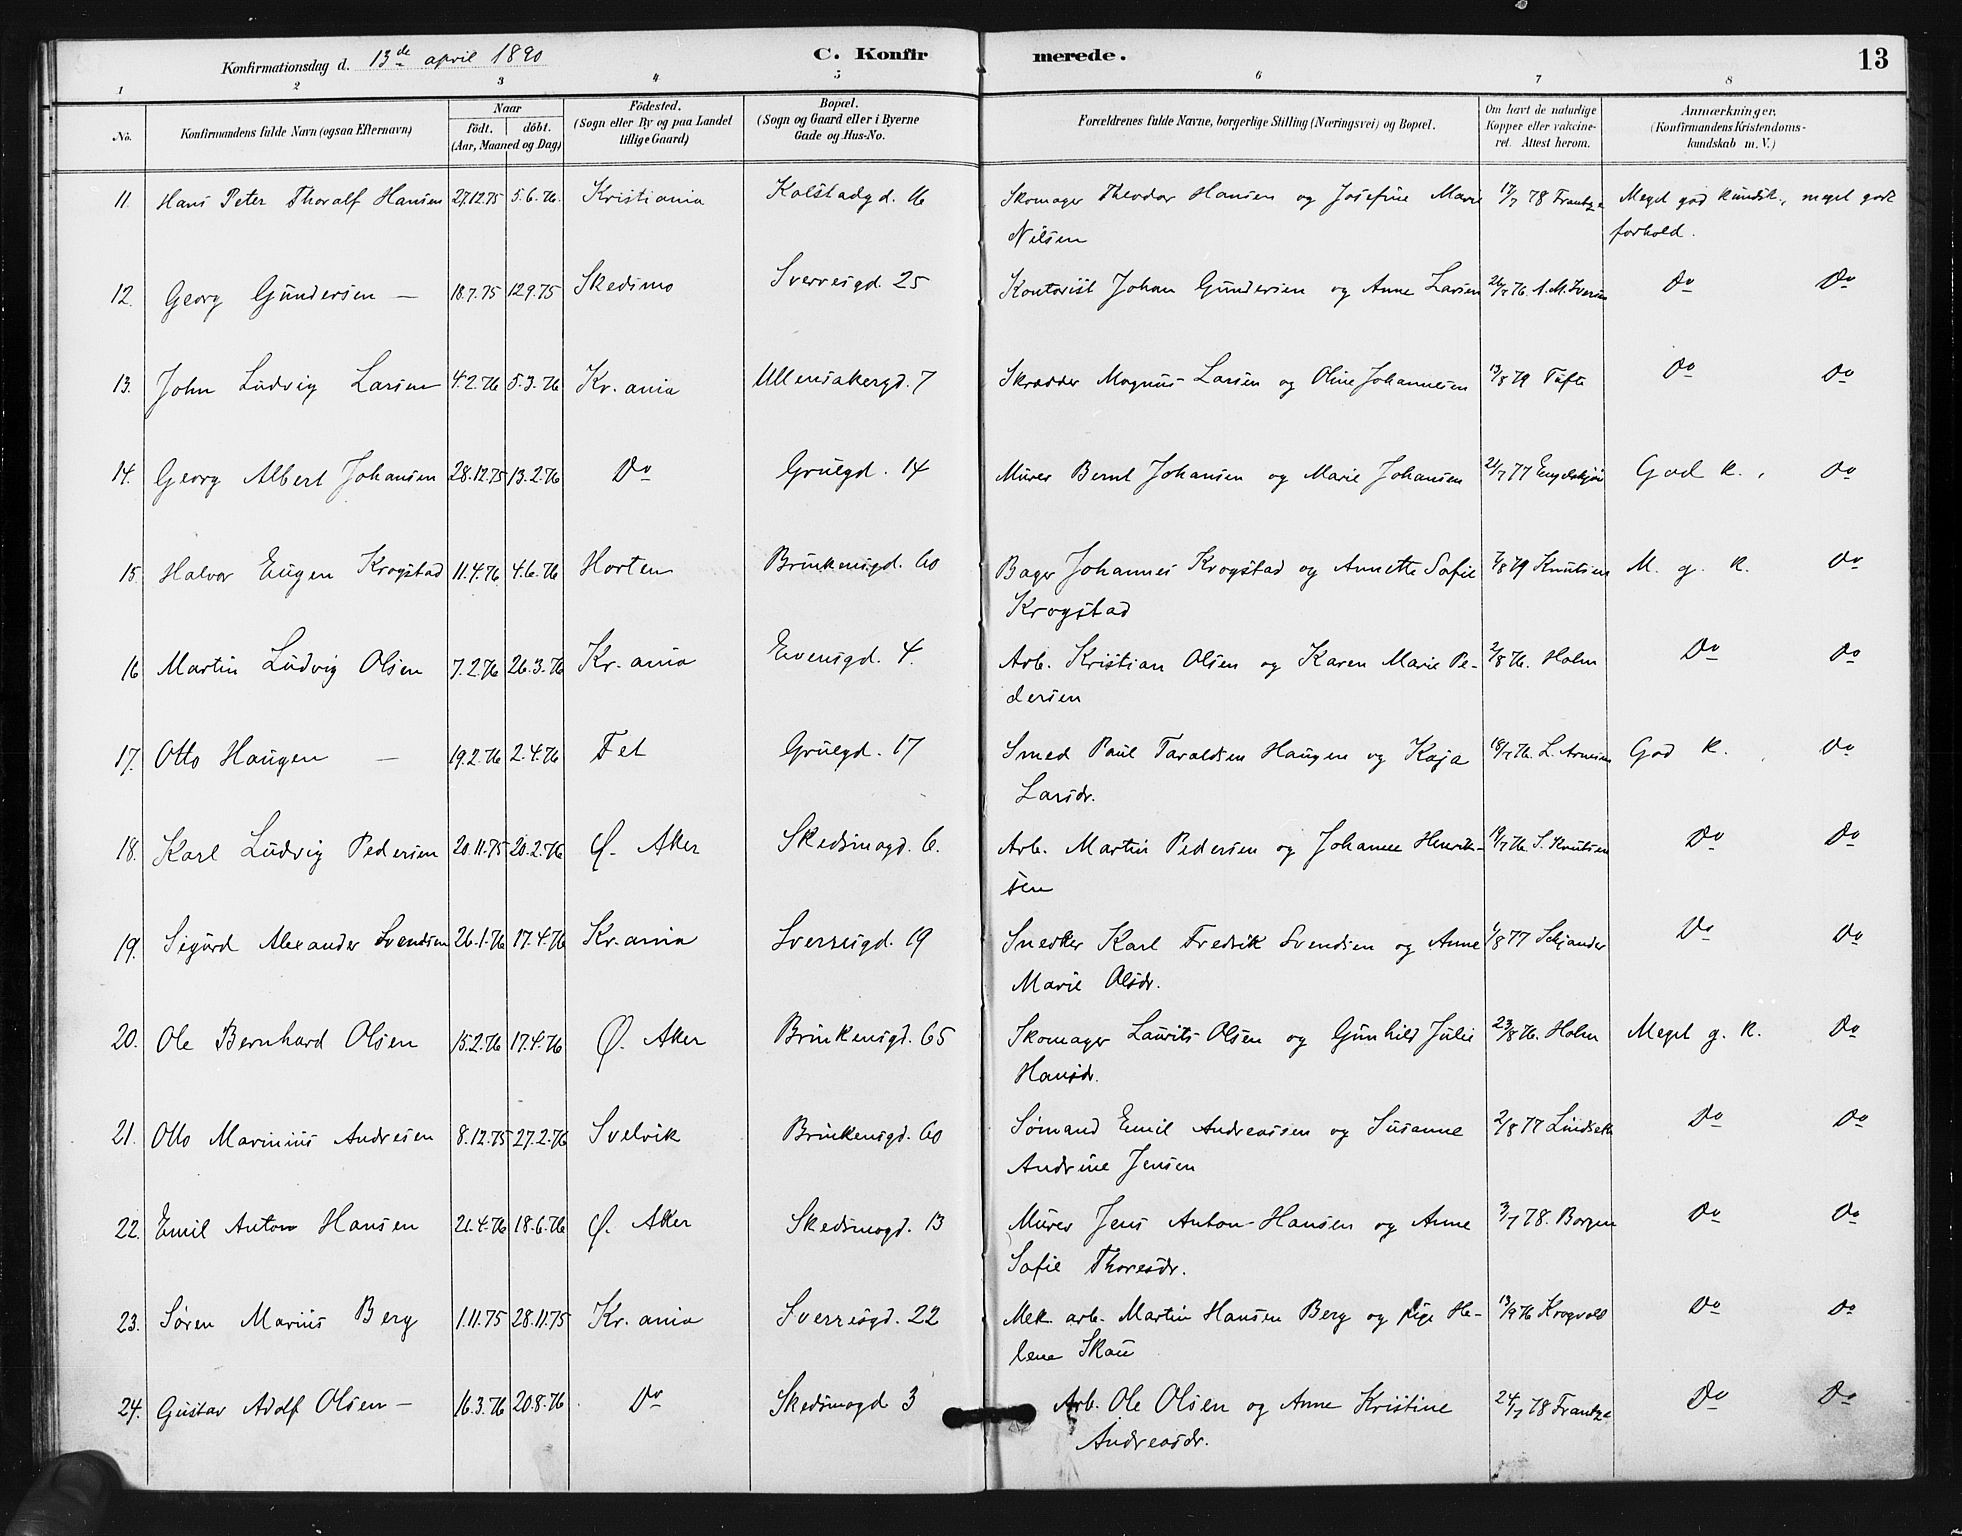 Konfirmationsdag d. 13de april 1890 C. Konfirmerede. 13
1 2 3 4 5 6 7 8
No. Konfirmandens fulde Navn (ogsaa Efternavn) Naar født. døbt. (Aar, Maaned og Dag) Födested. (Sogn eller By og paa Landet tillige Gaard) Bopæl. (Sogn og Gaard eller i Byerne Gade og Hus-No. Forældrenes fulde Navne, borgerlige Stilling (Næringsvei) og Bopæl. Om havt de naturlige Kopper eller vakcineret. Attest herom. Anmærkninger. (Konfirmandens Kristendomskundskab m. V.)
11. Hans Peter Thoralf Hansen 27.12.75 5.6.76. Kristiania Kalstadgd. 16 Skomager Theodor Hansen og Josefine Marie 17/7 78 Frantze Meget god kundsk., meget godt
Nilsen forhold.
12. Georg Gundersen — 18.7.75 12.9.75 Skedsmo Sverresgd 25 Kontorist Johan Gundersen og Anne Larsen 26/7 76. A. M. Iversen Do Do
13. John Ludvig Larsen 4.2.76 5.3.76 Kr.ania Ullensakergd. 7 Skrædder Magnus Larsen og Oline Johannesen 13/8 79 Tofte Do Do
14. Georg Albert Johansen 28.12.75 13.2.76 Do Grüegd. 14 Murer Bernt Johansen og Marie Johansen 21/7 77 God k., Do
15. Halvor Eugen Krogstad 11.4.76 4.6.76 Horten Brinkensgd. 60 Bager Johannes Krogstad og Annette Sofie 7/8 79 Knutsen M. g. k. Do
Krogstad
16 Martin Ludvig Olsen 7.2.76 26.3.76 Kr.ania Evensgd. 4. Arb. Kristian Olsen og Karen Marie Pe- 2/8 76. Holm Do Do
dersen
17. Otto Haugen — 19.2.76 2.4.76 Fet Grüegd. 17 Smed Paul Taraldsen Haugen og Kaja 18/7 76. L. Arnesen God k. , Do
Larsdr.
18. Karl Ludvig Pedersen 20.11.75 20.2.76 Ø. Aker Skedsmogd. 6. Arb. Martin Pedersen og Johanne Henrik- 19/7 76. S. Knutsen Do Do
sen
19. Sigurd Alexander Svendsen 26.1.76 17.4.76 Kr.ania Sverresgd. 19 Snedker Karl Fredrik Svendsen og Anne 1/8 77 Schjander Do Do
Marie Olsdr.
20. Ole Bernhard Olsen 15.2.76 17.4.76 Ø. Aker Brinkensgd. 65 Skomager Laurits Olsen og Gunhild Julie 23/8 76. Holm Meget g. k. Do
Hansdr.
21. Otto Marinius Andresen 8.12.75 27.2.76 Svelvik Brinkensgd. 60 Sømand Emil Andreassen og Susanne 2/8 77 Lindseth Do Do
Andrine Jensen
22. Emil Anton Hansen 21.4.76 18.6.76 Ø. Aker Skedsmogd. 13 Murer Jens Anton Hansen og Anne 3/7 78. Borgen Do Do
Sofie Thoresdr.
23. Søren Marius Berg 1.11.75 28.11.75 Kr.ania Sverresgd. 22 Mek. arb. Martin Hansen Berg og pige He- 13/9 76 Krogvold Do Do
lene Skau
24. Gustav Adolf Olsen — 16.3.76 20.8.76 Do Skedsmogd 3 Arb. Ole Olsen og Anne Kristine 24/7 78 Frantze Do Do
Andreasdr.